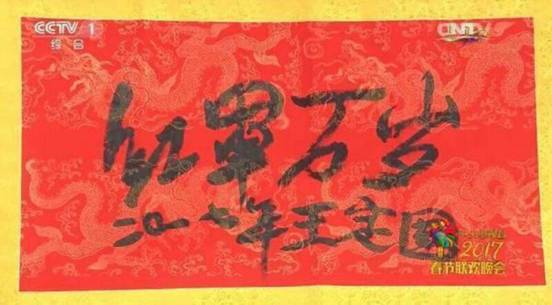 CCTV 1
综合
CNTV
红軍万岁
二〇一七年王定国
2017
春节联欢晚会